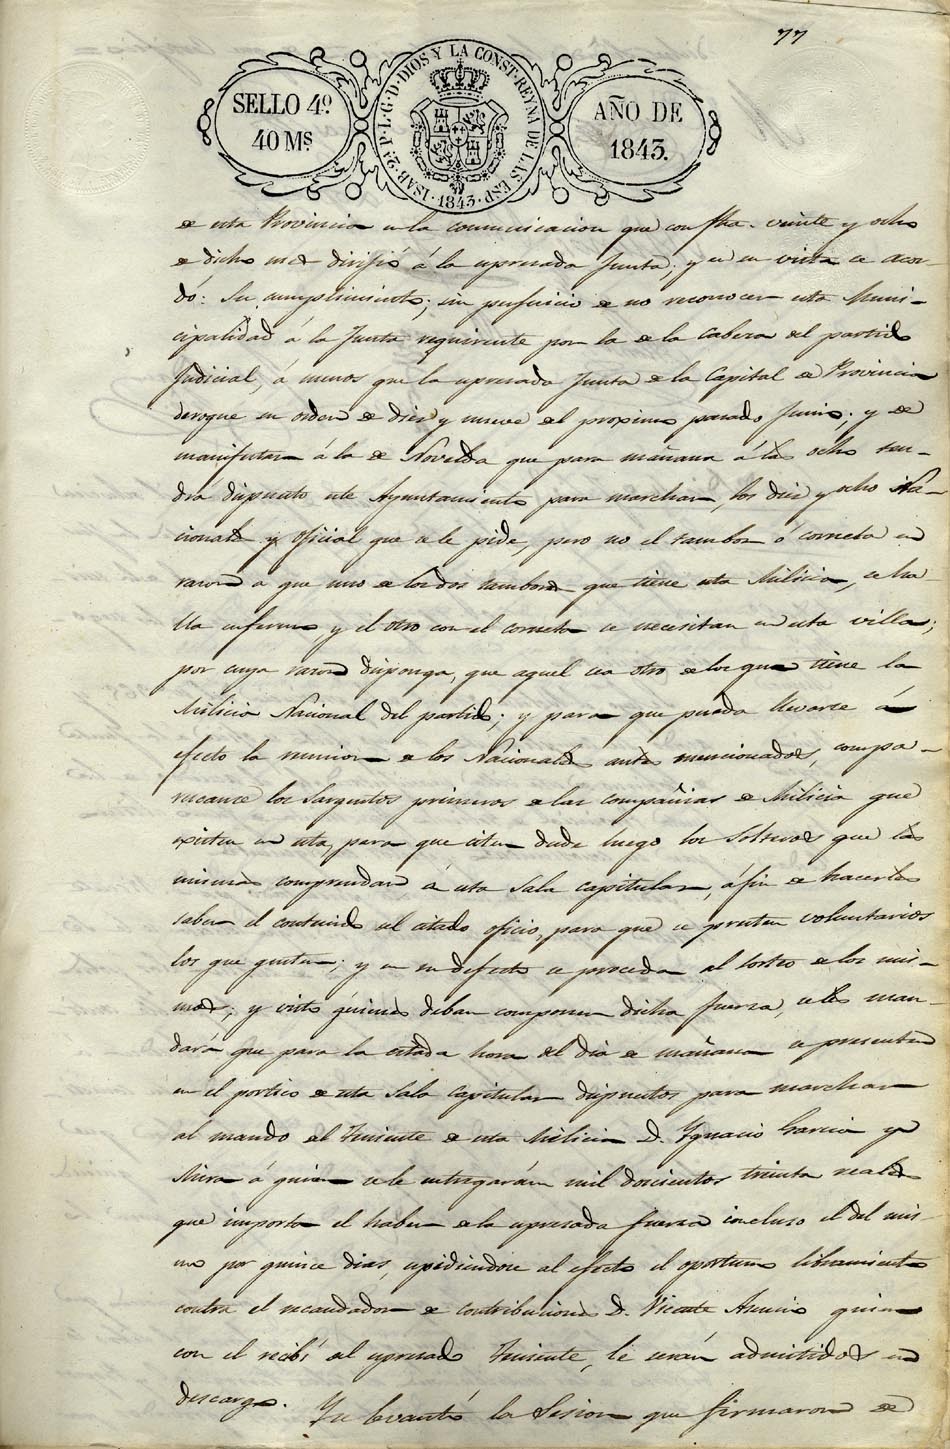 77
SELLO 4º.
40 Ms
ISAB. 2ª P. L. G. D. DIOS Y LA CONST. REYNA DE LAS ESP.
1843.
AÑO DE
1843.
de esta Provincia en la comunicacion que con fha. veinte y ocho
de dicho mes dirijió á la espresada Junta; y en su vista se acor-
dó: Su cumplimiento; sin perjuicio de no reconocer esta Muni-
cipalidad á la Junta requirente por la de la Cabeza del partido
Judicial, á menos que la espresada Junta de la Capital de Provincia
derogue su orden de diez y nueve del proximo pasado Junio; y se
manifestara á la de Novelda que para mañana á las ocho ten-
drá dispuesto este Ayuntamiento para marchar, los diez y ocho Na-
cionales y oficial que se le pide, pero no el tambor ó corneta en
razon a que uno de los dos tambores que tiene esta Milicia, se ha-
lla enfermo, y el otro con el corneta se necesitan en esta villa;
por cuya razon disponga, que aquel sea otro de los que tiene la
Milicia Nacional del partido; y para que pueda llevarse á
efecto la reunion de los Nacionales antes mencionados, compa-
rezcanse los Sargentos primeros de las compañias de Milicia que
existen en esta, para que citen desde luego los Solteros que las
mismas comprendan á esta Sala capitular, á fin de hacerles
saber el contenido del citado oficio, para que se presten voluntarios
los que gusten; y en su defecto se proceda al sorteo de los mis-
mos; y visto quienes deban componer dicha fuerza, se les man-
dará que para la citada hora del dia de mañana se presenten
en el portico de esta Sala Capitular dispuestos para marchar
al mando del Teniente de esta Milicia D. Ygnacio Garcia y
Mira á quien se le entregarán mil doscientos treinta reales
que importa el haber de la espresada fuerza incluso el del mis-
mo por quince dias, espidiendose al efecto el oportuno libramiento
contra el recaudador de contribuciones D. Vicente Asencio quien
con el recibí del espresado Teniente, le serán admitidos en
descargo. Y se levantó la Sesion que firmaron de